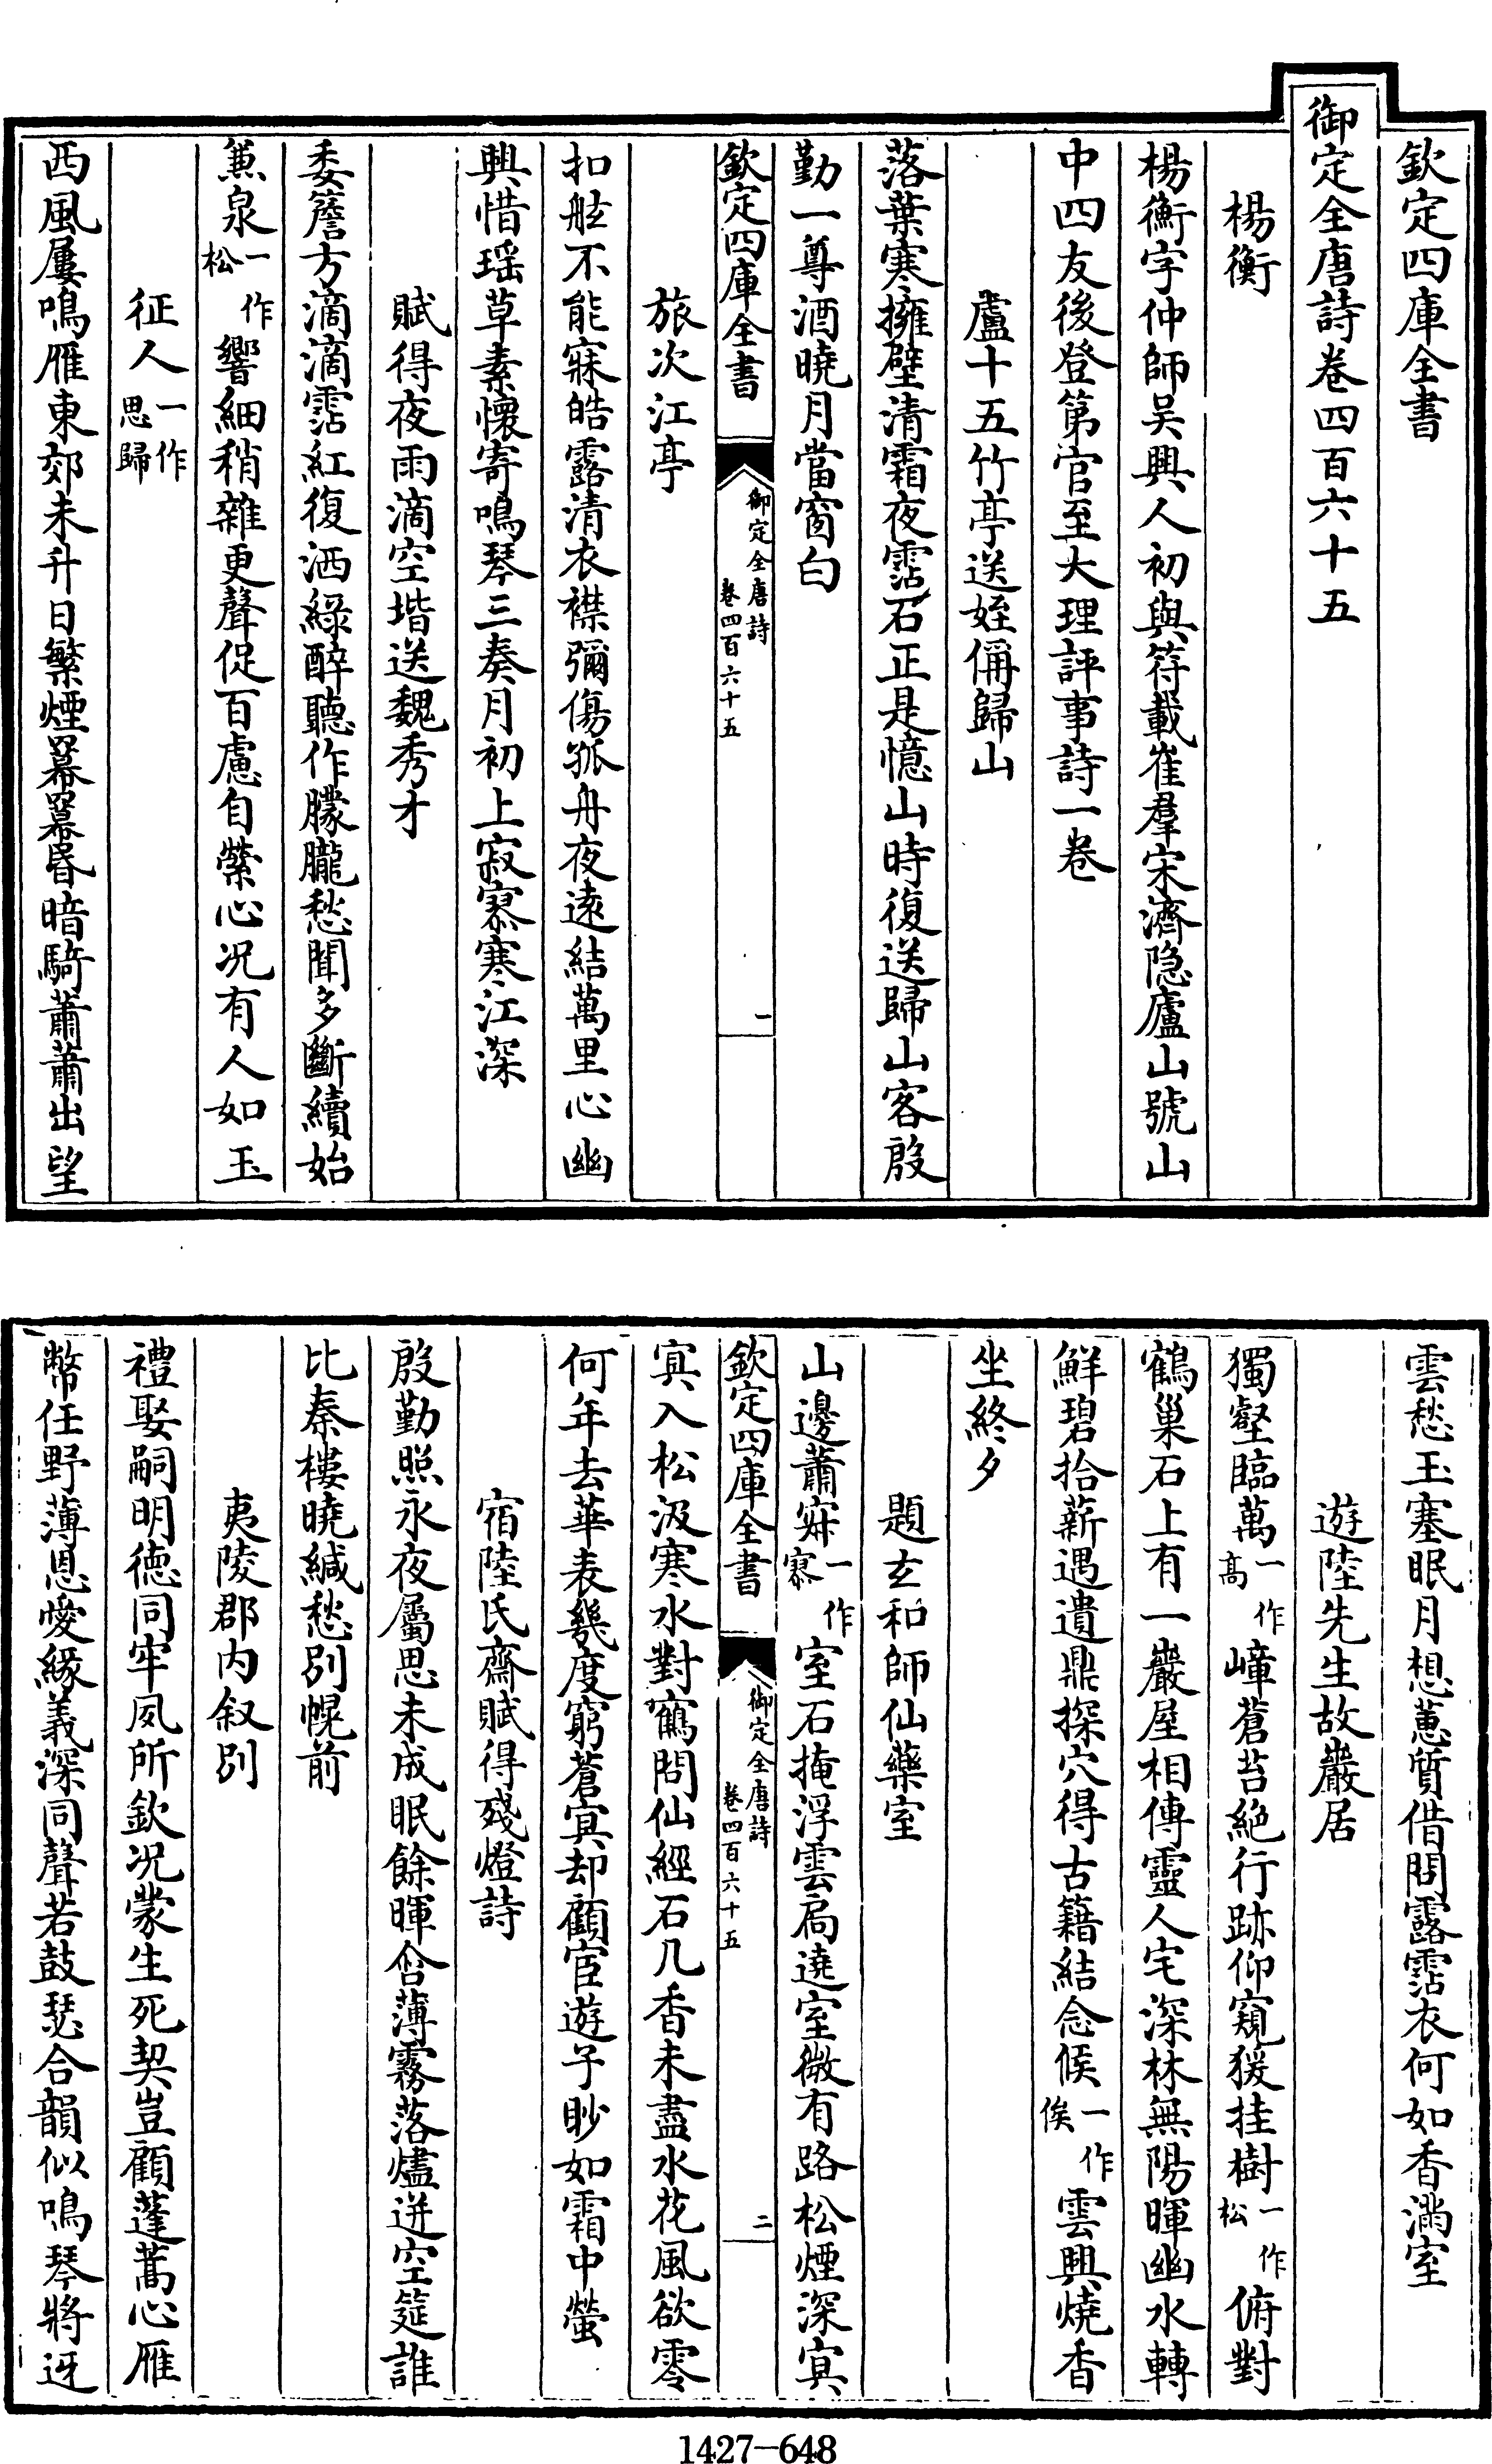 欽定四庫全書
御定全唐詩卷四百六十五
楊衡
楊衡字仲師吴興人初與符載崔羣宋濟隐廬山號山
中四友後登第官至大理評事詩一卷
盧十五竹亭送姪偁歸山
落葉寒擁壁清霜夜霑石正是憶山時復送歸山客殷
勤一尊酒曉月當窗白
欽定四庫全書
御定全唐詩
卷四百六十五
一
旅次江亭
扣舷不能寐皓露清衣襟彌傷孤舟夜遠結萬里心幽
興惜瑶草素懷寄鳴琴三奏月初上寂寥寒江深
賦得夜雨滴空堦送魏秀才
委簷方滴滴霑紅復洒緑醉聽作朦朧愁聞多斷續始
兼泉一作松響細稍雜更聲促百慮自縈心况有人如玉
征人一作思歸
西風屢鳴雁東郊未升日繁煙幂幂昏暗騎蕭蕭出望
雲愁玉塞眠月想蕙質借問露霑衣何如香滿室
遊陸先生故巖居
獨壑臨萬一作髙嶂蒼苔絶行跡仰窺猨挂樹一作松俯對
鶴巢石上有一巖屋相傳靈人宅深林無陽暉幽水轉
鮮碧拾薪遇遺鼎探穴得古籍結念候一作俟雲興燒香
坐終夕
題玄和師仙藥室
山邊蕭寂一作寥室石掩浮雲扃遶室微有路松煙深㝠
欽定四庫全書
御定全唐詩
卷四百六十五
二
㝠入松汲寒水對鶴問仙經石几香未盡水花風欲零
何年去華表幾度窮蒼㝠却顧宦遊子眇如霜中螢
宿陸氏齋賦得殘燈詩
殷勤照永夜屬思未成眠餘暉含薄霧落燼迸空筵誰
比秦樓曉緘愁别幌前
夷陵郡内叙别
禮娶嗣明徳同牢夙所欽况蒙生死契豈顧蓬蒿心雁
幣任野薄恩愛緣義深同聲若鼓瑟合韻似鳴琴將迓
1427-648